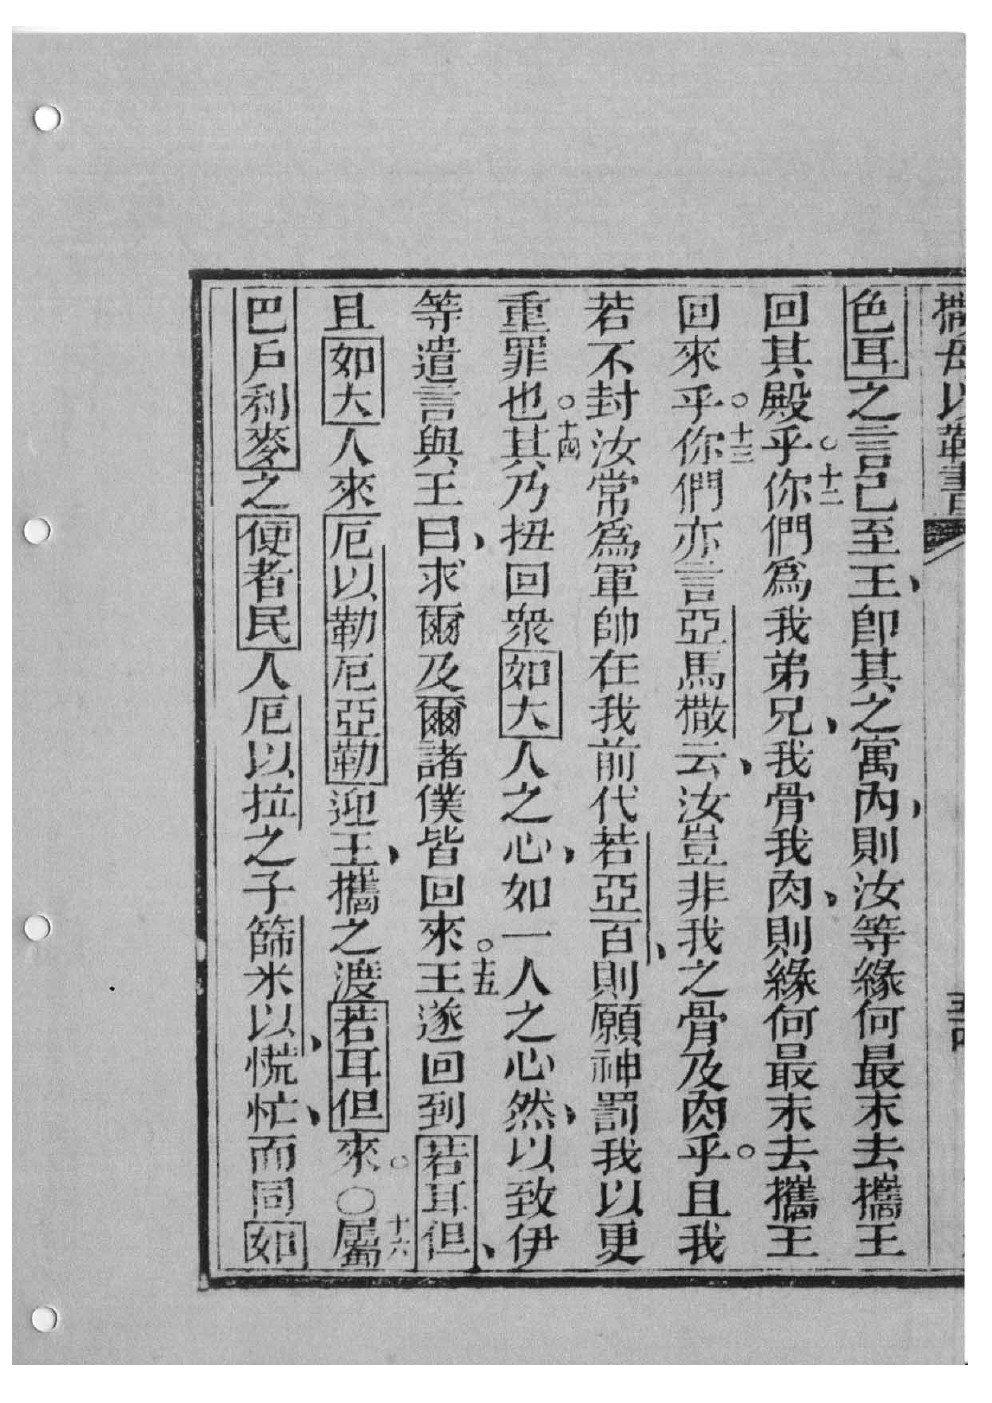 撒母以勒書
色耳之言已至王、卽其之寓內、則汝等緣何最末去攜王
回其殿乎。十二你們爲我弟兄、我骨我肉、則緣何最末去攜王
回來乎。十三你們亦言亞馬撒云、汝豈非我之骨及肉乎。且我
若不封汝常爲軍帥在我前代若亞百、則願神罰我以更
重罪也。十四其乃扭回衆如大人之心、如一人之心然、以致伊
等遣言與王曰、求爾及爾諸僕皆回來。十五王遂回到若耳但、
且如大人來厄以勒厄亞勒迎王、攜之渡若耳但來。〇十六屬
巴戶利麥之便者民人厄以拉之子篩米以、慌忙、而同如